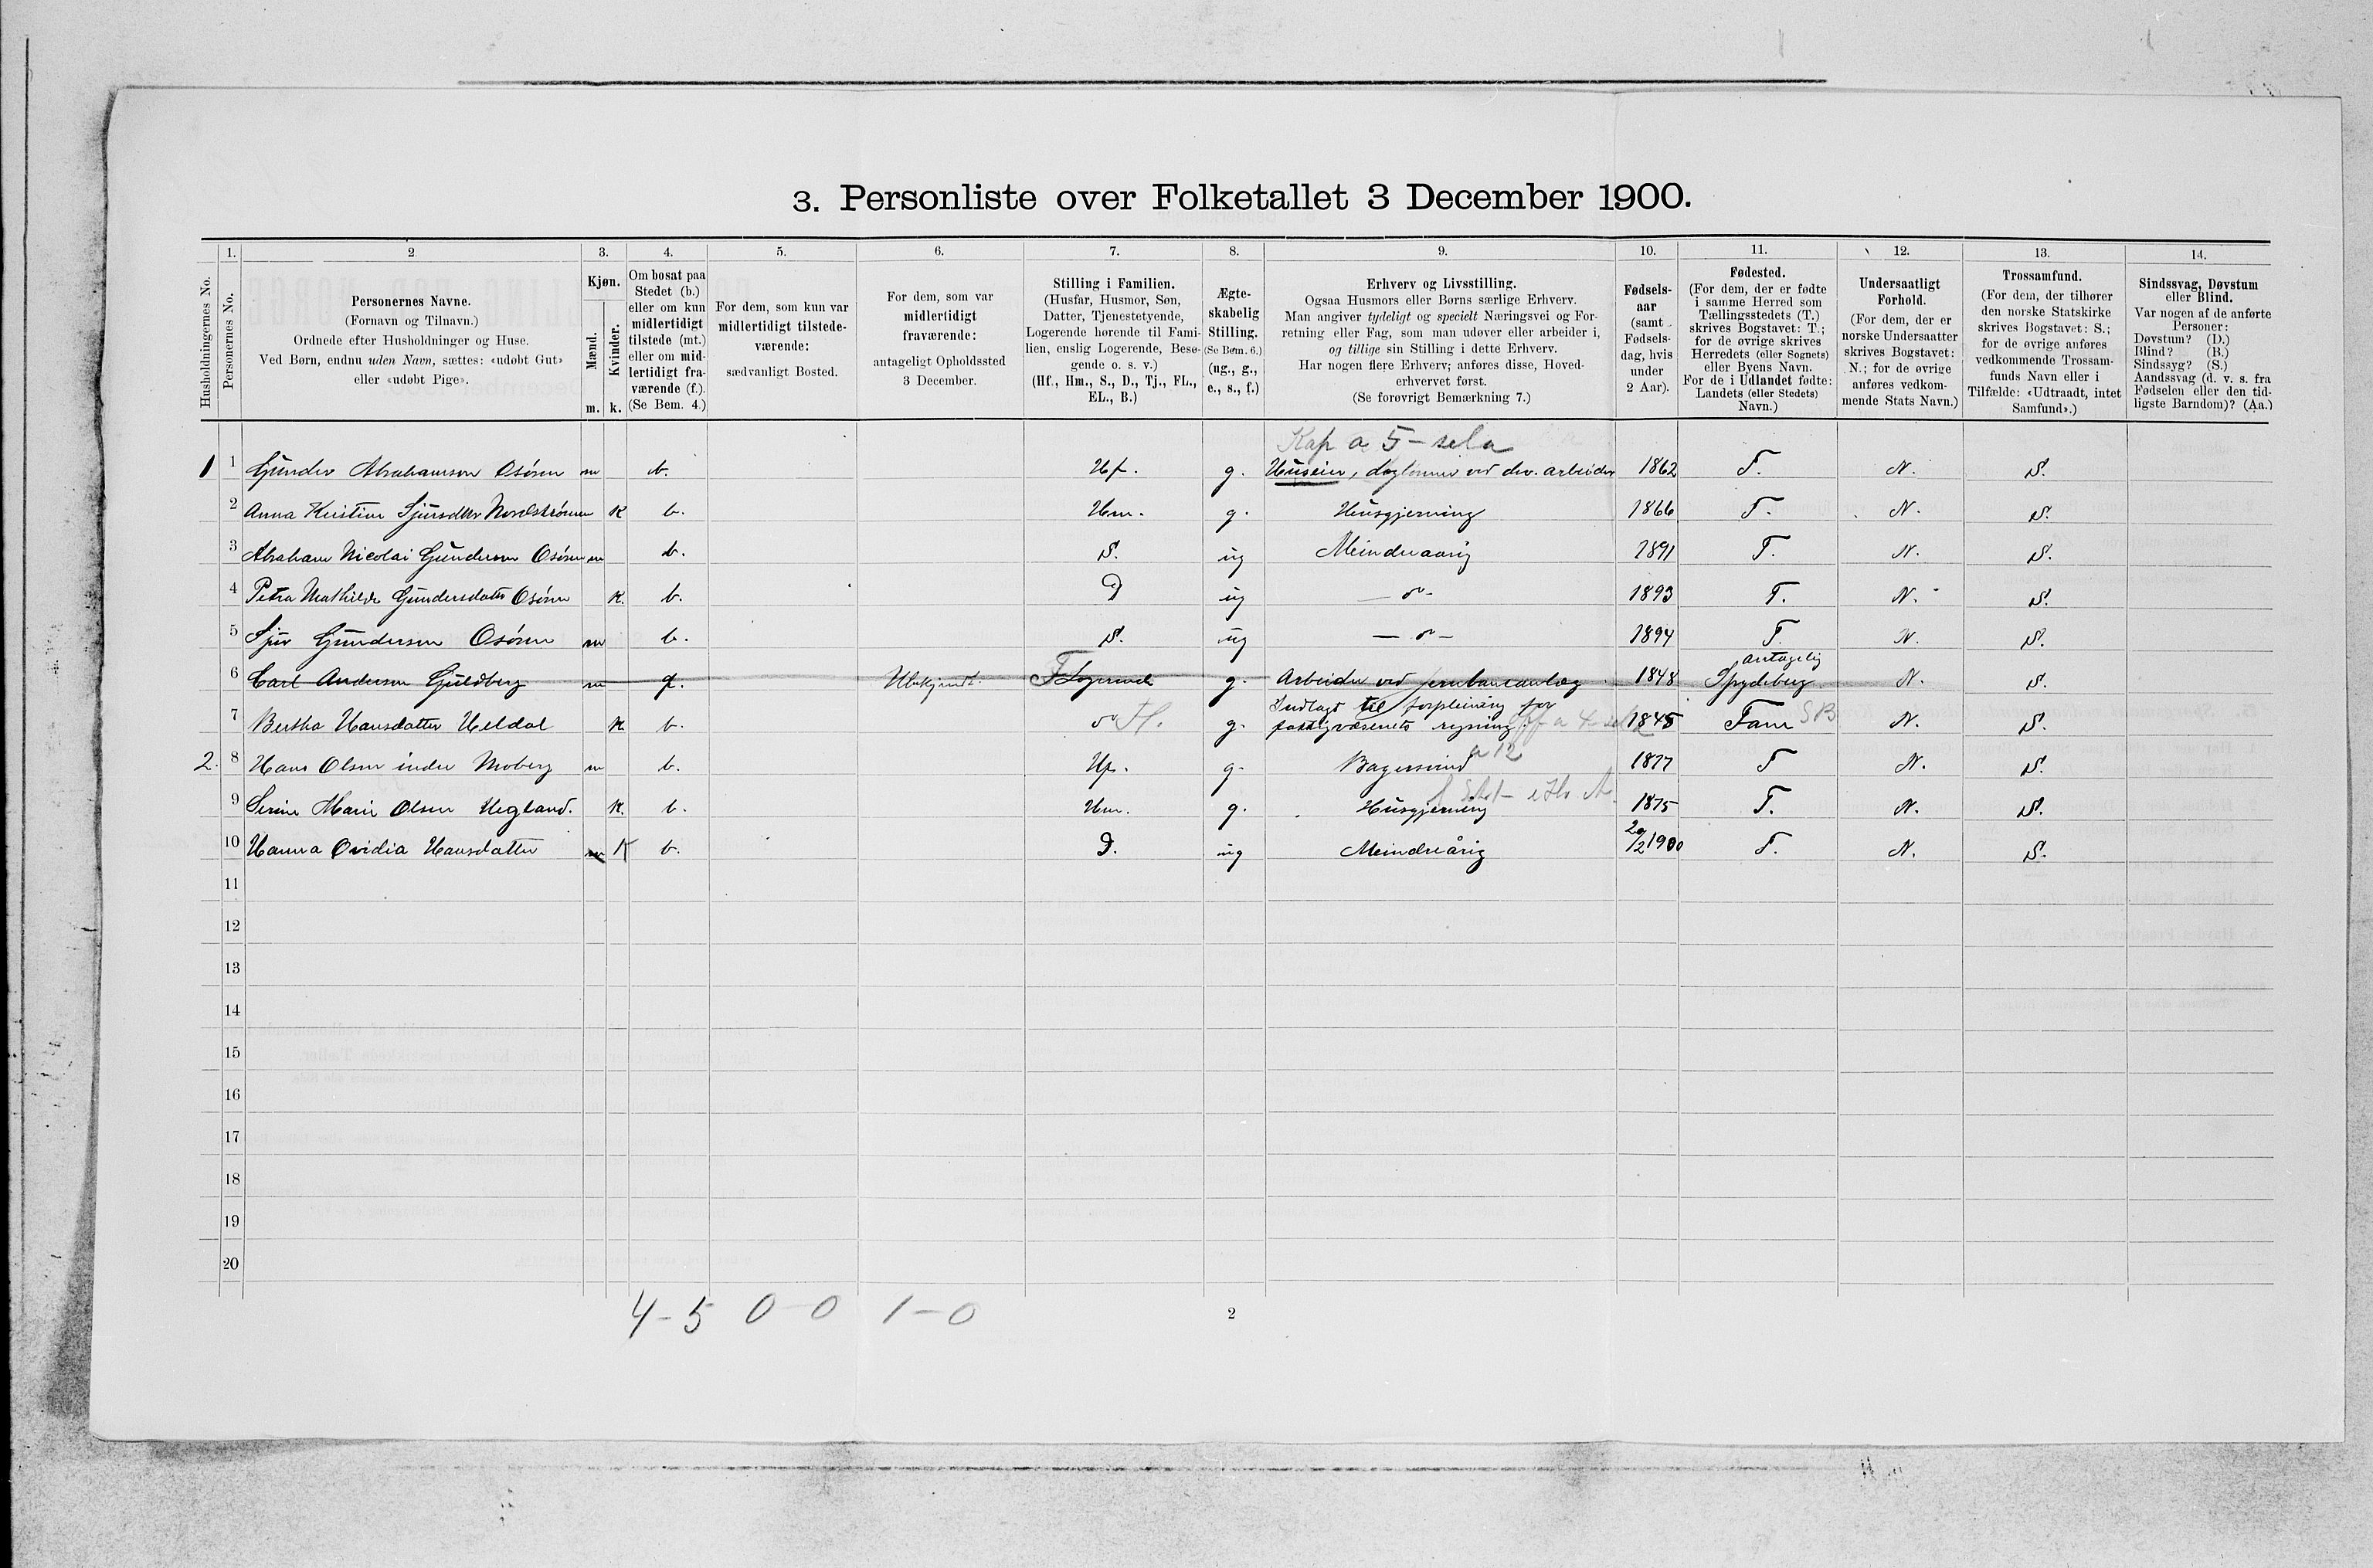 3. Personliste over Folketallet 3 December 1900.
Husholdningernes No.
1.
Personernes No.
2
Personernes Navne.
(Fornavn og Tilnavn.)
Ordnede efter Husholdninger og Huse.
Ved Børn, endnu uden Navn, sættes: «udøbt Gut»
eller «udøbt Pige».
3.
Kjøn.
Mænd.
Kvinder.
m. k.
4.
Om bosat paa
Stedet (b.)
eller om kun
midlertidigt
tilstede (mt.)
eller om mid-
lertidigt fra-
værende (f.).
(Se Bem. 4.)
5.
For dem, som kun var
midlertidigt tilstede-
værende:
sædvanligt Bosted.
6.
For dem, som var
midlertidigt
fraværende:
antageligt Opholdssted
3 December.
7.
Stilling i Familien.
(Husfar, Husmor, Søn,
Datter, Tjenestetyende,
Logerende hørende til Fami-
lien, enslig Logerende, Besø-
gende o. s. v.)
(Hf., Hm., S., D., Tj., FL.,
EL., B.)
8.
Ægte-
skabelig
Stilling.
(Se Bem. 6.)
(ug., g.,
e., s., f.)
9.
Erhverv og Livsstilling.
Ogsaa Husmors eller Børns særlige Erhverv.
Man angiver tydeligt og specielt Næringsvei og For-
retning eller Fag, som man udøver eller arbeider i,
og tillige sin Stilling i dette Erhverv.
Har nogen flere Erhverv; anføres disse, Hoved-
erhvervet først.
(Se forøvrigt Bemærkning 7.)
10.
Fødsels-
aar
(samt
Fødsels-
dag, hvis
under
2 Aar).
11.
Fødested.
(For dem, der er fødte
i samme Herred som
Tællingsstedets (T.)
skrives Bogstavet: T.;
for de øvrige skrives
Herredets (eller Sognets)
eller Byens Navn.
For de i Udlandet fødte:
Landets (eller Stedets)
Navn.)
12.
Undersaatligt
Forhold.
(For dem, der er
norske Undersaatter
skrives Bogstavet:
N.; for de øvrige
anføres vedkom-
mende Stats Navn.)
13.
Trossamfund.
(For dem, der tilhører
den norske Statskirke
skrives Bogstavet: S.;
for de øvrige anføres
vedkommende Trossam-
funds Navn eller i
Tilfælde: «Udtraadt, intet
Samfund».)
14.
Sindssvag, Døvstum
eller Blind.
Var nogen af de anførte
Personer:
Døvstum? (D.)
Blind? (B.)
Sindssyg? (S.)
Aandssvag (d. v. s. fra
Fødselen eller den tid-
ligste Barndom)? (Aa.)
Kap a 5 - sela
1 1 Gunder Abrahamson Osøren m b. Hf. g. Huseier, dagløner ved div. arbeider 1862 T. N. S.
2 Anna Kristine Sjursdtr Nordstrønen K b. Hm. g. Husgjerning 1866 T. N. S.
3 Abraham Nicolai Gundersen Osøren m b. S. ug Meindreaarig 1891 T. N. S.
4 Petra Mathilde Gundersdatter Osøren K. b. D ug — " - 1893 T. N. S.
5 Sjur Gundersen Osøren m b. S. ug — " — 1894 T. N. S.
antagelig
6 Carl Andersen Guldberg m f. Ubekjendt. F Logerende g. Arbeider ved jernbaneanlæg 1848 Spydeberg N. S.
Indlagt til forpleining for
7 Bertha Hansdatter Heldal K b. " Fl. g. fattigvæsenets regning 1845 Fane SB N. S.
a 12
2. 8 Hans Olsen indre Moberg m b. Hf. g. Bagersvend 1877 T N. S.
9 Serine Marie Olsen Hegland. K. b. Hm. g. Husgjerning 1875 T. N. S.
10 Hanna Ovidia Hansdatter m K b. D. ug Meindreårig 20/2 1900 T. N. S.
11
12
13
14
15
16
17
18
19
20
4-5 0-0 1-0
2